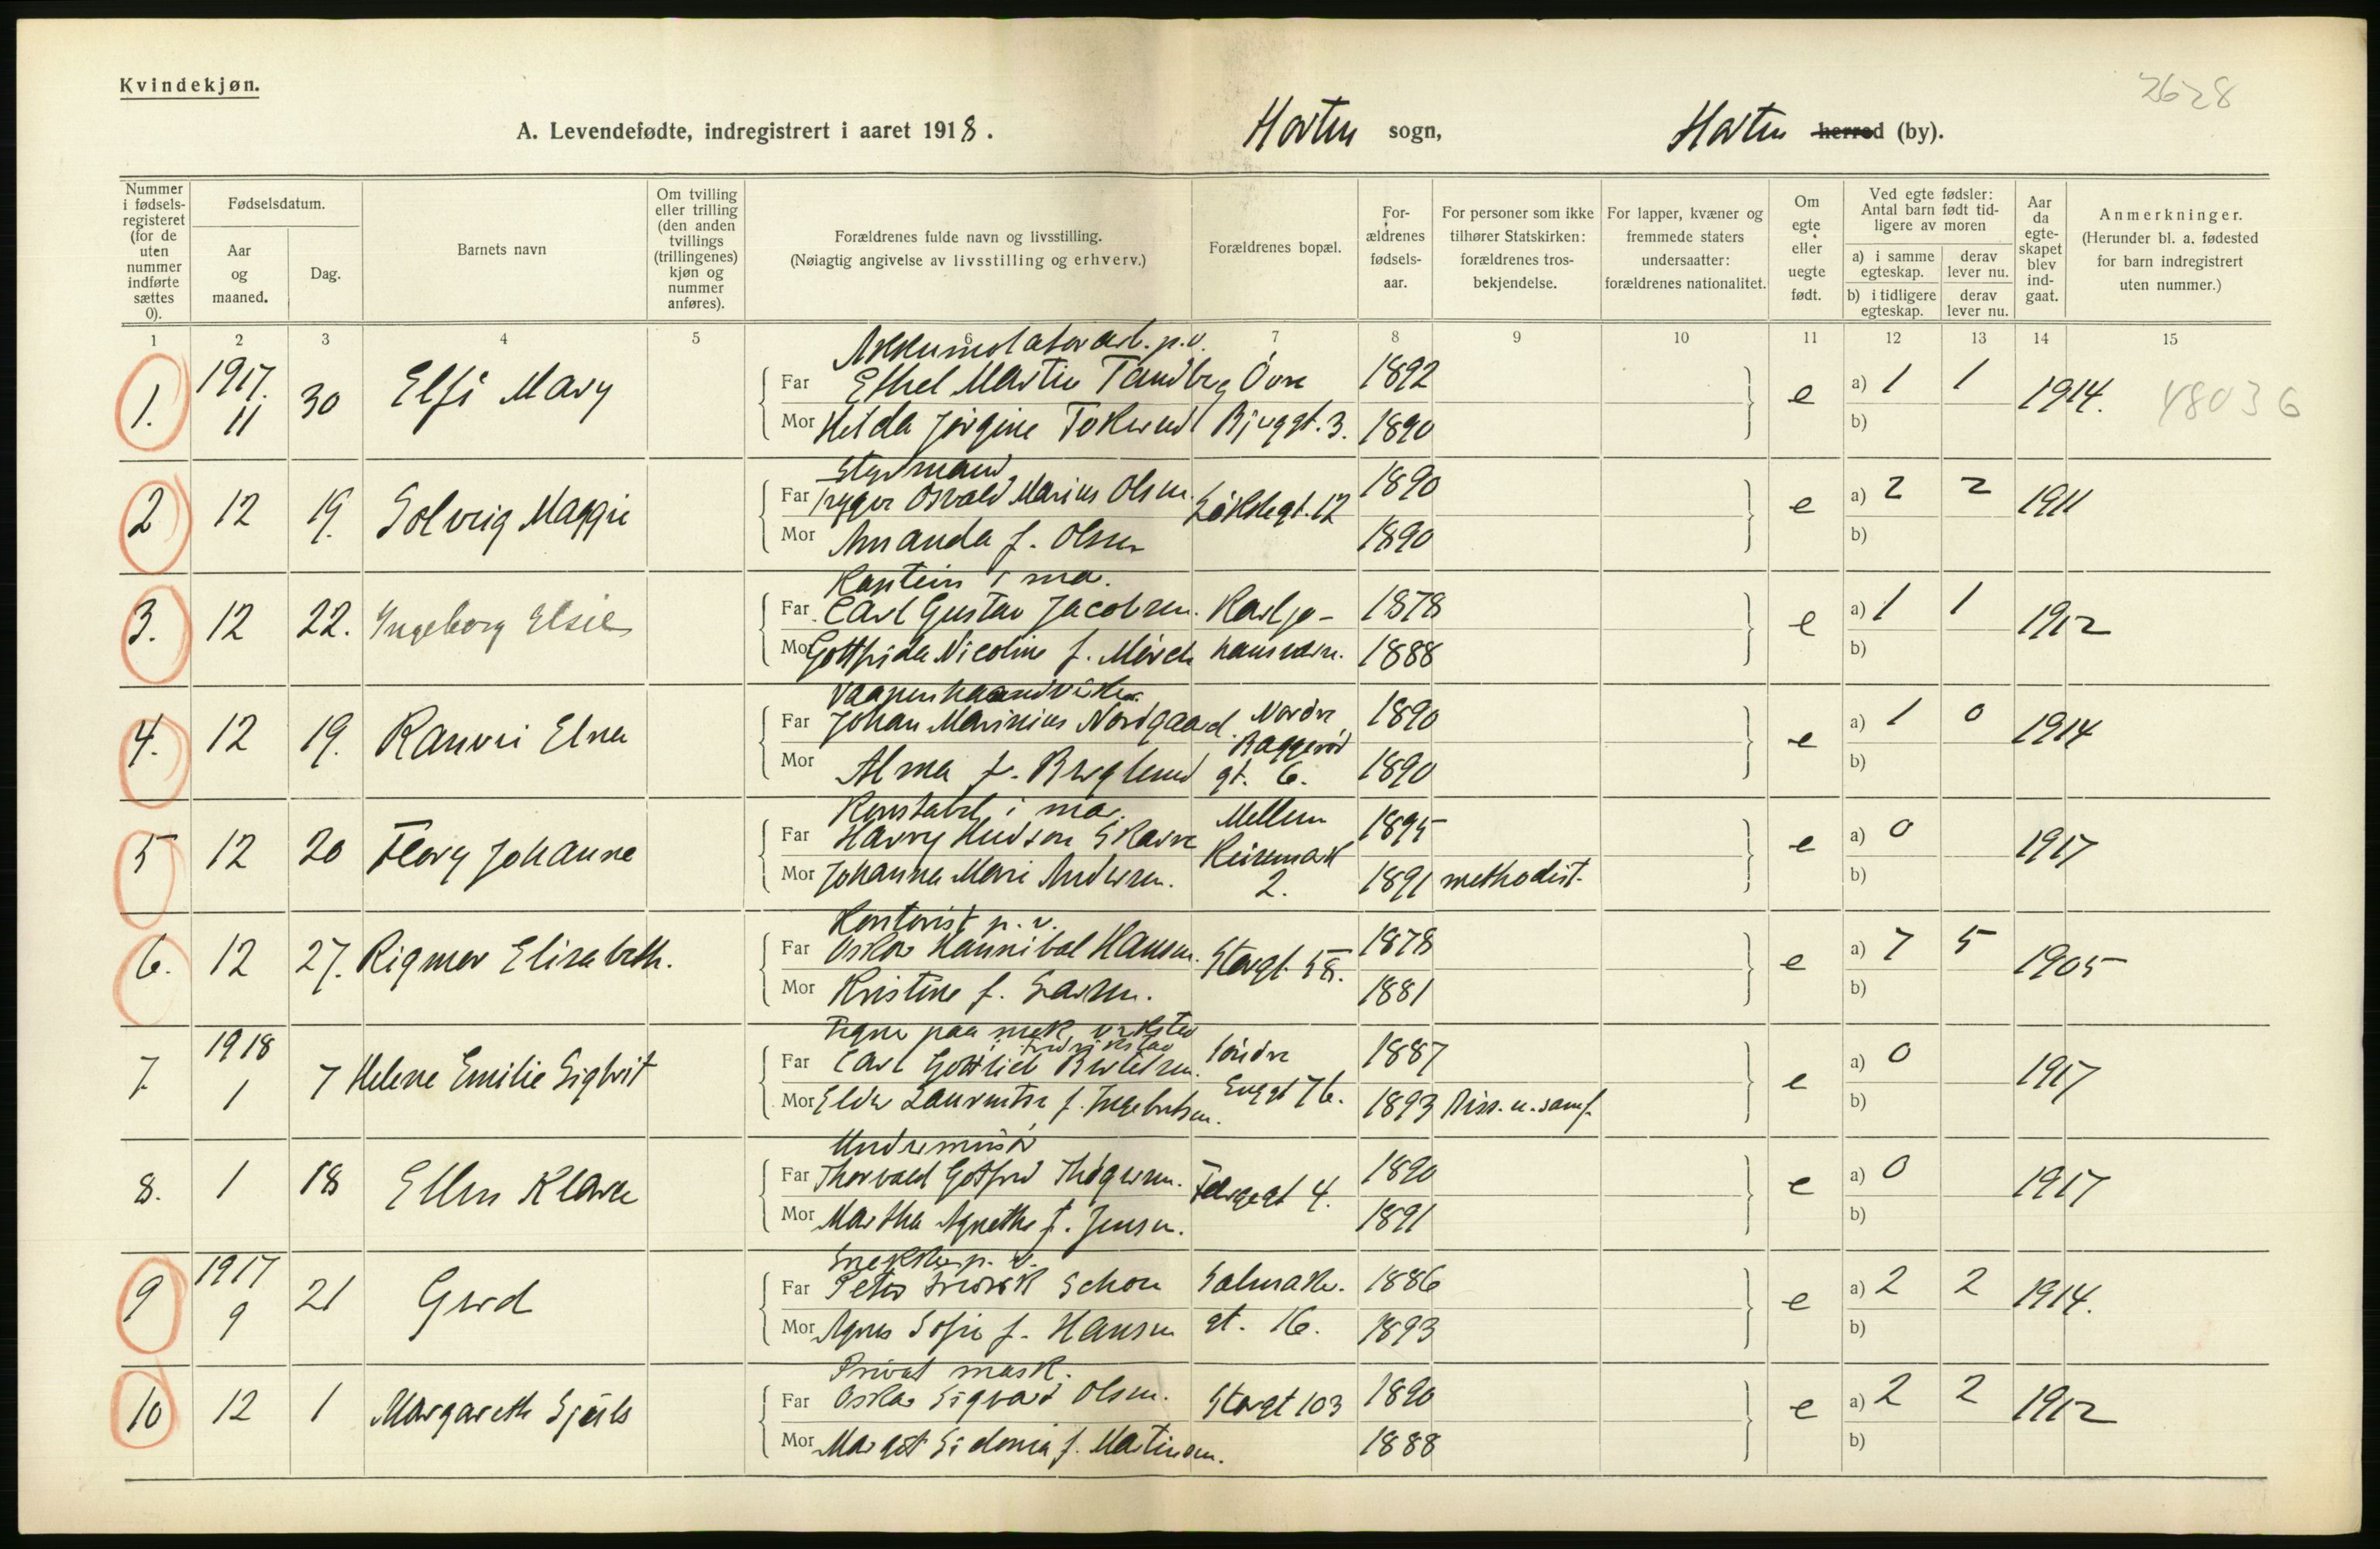 Kvindekjøn.
2628
A. Levendefødte, indregistrert i aaret 1918. Horten sogn, Horten herred (by).
Nummer i fødsels-registeret (for de uten nummer indførte sættes 0).
Fødselsdatum.
Aar og maaned.
Dag.
Barnets navn
Om tvilling eller trilling (den anden tvillings (trillingenes) kjøn og nummer anføres).
Forældrenes fulde navn og livsstilling.
(Nøiagtig angivelse av livsstilling og erhverv.)
Forældrenes bopæl.
For-ældrenes fødsels-aar.
For personer som ikke tilhører Statskirken: forældrenes tros-bekjendelse.
For lapper, kvæner og fremmede staters undersaatter: forældrenes nationalitet.
Om egte eller uegte født.
Ved egte fødsler: Antal barn født tid-ligere av moren
a) i samme egteskap.
derav lever nu.
b) i tidligere egteskap.
derav lever nu.
Aar da egte-skapet blev ind-gaat.
Anmerkninger.
(Herunder bl. a. fødested for barn indregistrert uten nummer.)
1 2 3 4 5 6 7 8 9 10 11 12 13 14 15
Akkumolatorarb. p.v.
1. 1917. 11 30 Elfi Mary
Far Ethel Martin Tandberg Övre 1892
Mor Helda Jörgine Bjerggt. 3. 1890
e a) 1 1 b) 1914. 48036
Styrmand
2 12 19. Solveig Maggie
Far Trygve Osvald Marius Olsen 1890
Mor Amanda f. Olsen 1890
e a) 2 2 b) 1911
Kaptein i ma.
3. 12 22. Ingeborg Elsie
Far Carl Gustav Jacobsen. Karljo- 1878
Mor Gottfrida Nicoline f. Mörch hansvern. 1888
e a) 1 1 b) 1912
Vaapenhaandverker
4. 12 19. Ranvei Elna
Far Johan Marinius Nordgaard. Nordre 1890
Baggerød
Mor Alma f. Berglund gt. 6. 1890
e a) 1 0 b) 1914
Konstabel i ma. Mellem
5 12 20 Florg Johanne
Far Harry Hudson Skarre 1895
Keisemark
Mor Johanna Marie Andersen. 2. 1891 methodist.
e a) 0 b) 1917
Kontorist p.v.
6. 12 27. Rigmor Elisabeth.
Far Oskar Hannibal Hansen. Storgt. 58. 1878
Mor Kristine f. Larsen. 1881
e a) 7 5 b) 1905
Tegner paa mek. verksted
i Fredrikstad
7. 1918 1 7 Helene Emilie Sigbrit
Far Carl Gottlieb Bertelsen. Söndre 1887
Mor Elida Laurentse f. Ingebretsen. Enggt 76. 1893 Diss. u. samf.
e a) 0 b) 1917
Underminör
8. 1 18 Ellen Klara
Far Thorvald Gotfred Thögersen. 4. 1890
Mor Martha Agnethe f. Jensen. 1891
e a) 0 b) 1917
Snekker p. v.
9 1917 9 21 Gerd
Far Peter Fredrik Schou Salmaker. 1886
Mor Agnes Sofie f. Hansen gt. 16. 1893
e a) 2 2 b) 1914.
Privat mask.
10 12 1 Margareth
Far Oskar Sigvart Olsen. Storgt 103 1890
Mor Margit Sidonia f. Martinsen. 1888
e a) 2 2 b) 1912